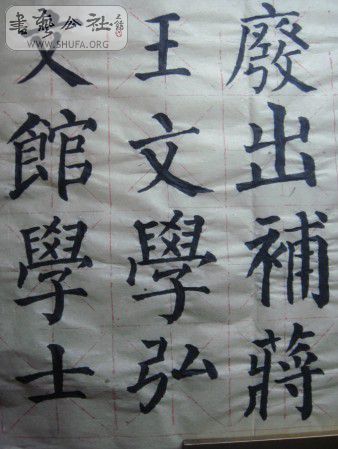 廢出補蔣
王文學弘
文館學士
書藝公社
WWW.SHUFA.ORG